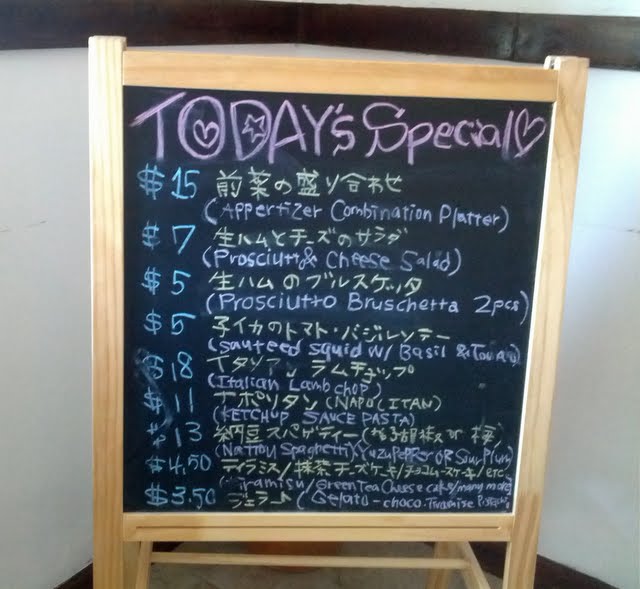 TODAY's Special
$15 前菜の盛り合わせ
(Appertizer Combination Platter)
$7 生ハムとチーズのサラダ
(Prosciutto & Cheese Salad)
$5 生ハムのブルスケッタ
(Prosciutto Bruschetta 2pcs)
$5 子イカのトマト・バジルソテー
(Sauteed squid w/ Basil &
$18 イタリアン ラムチョップ
(Italian Lamb chop)
$11 ナポリタン (NAPOLITAN)
(KETCHUP SAUCE PASTA)
$13 納豆スパゲティー (柚子胡椒 or 梅)
(Nattou Spaghetti) Yuzu Pepper OR Sour Plum)
$4.50 ティラミス/抹茶チーズケーキ/チョコムースケーキ/etc
(Tiramisu/Green Tea Cheese cake/many more)
$3.50 ジェラート (Gelato - choco. Tiramise